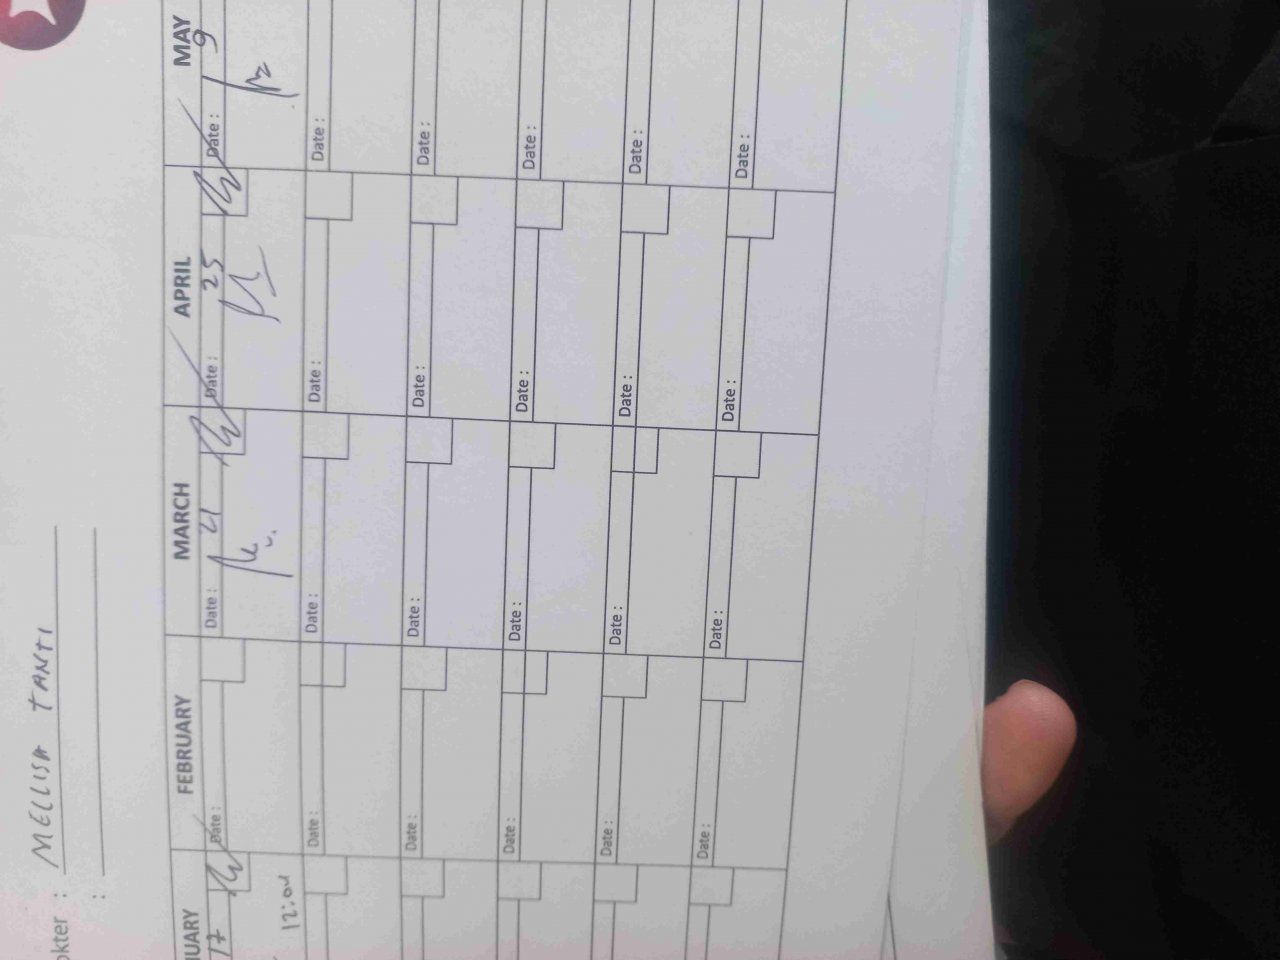 okter : MELLISA TANTI
:
NUARY FEBRUARY MARCH APRIL MAY
17 Date : Date : 21 Date : 25 Date : 9
12:00
Date : Date : Date : Date :
Date : Date : Date : Date :
Date : Date : Date : Date :
Date : Date : Date : Date :
Date : Date : Date : Date :